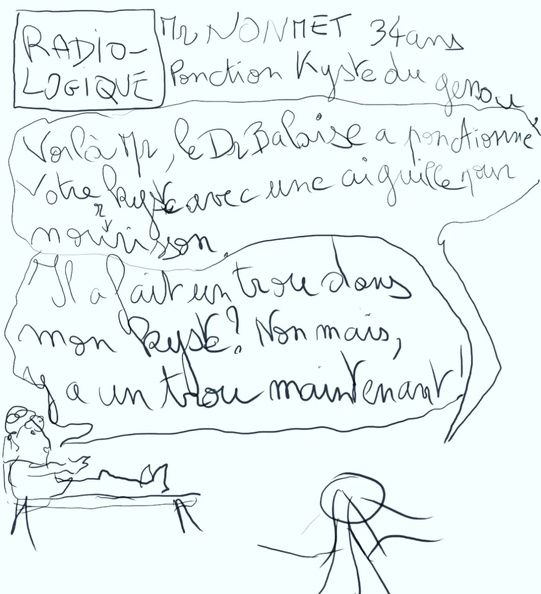 RADIO-
LOGIQUE
Mr NONMET 34 ans
Ponction Kyste du genou
Voilà Mr, le Dr Balaise a ponctionné
votre kyste avec une aiguille pour
nourrisson.
Il a fait un trou dans
mon kyste? Non mais,
y a un trou maintenant!